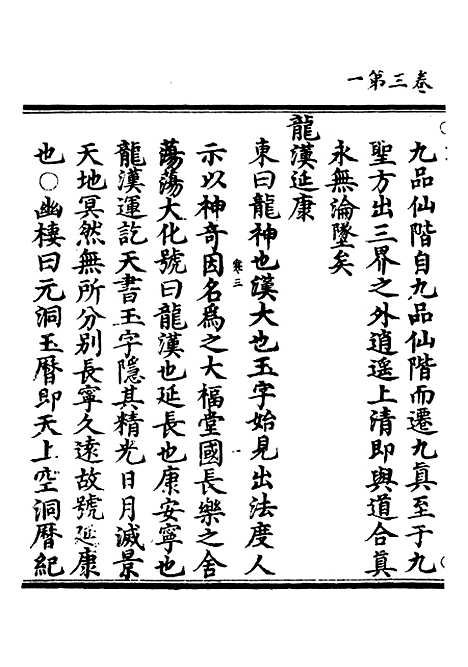 卷三第一
九品仙階自九品仙階而遷九真至于九
聖方出三界之外逍遥上清即與道合真
永無淪墜矣
龍漢延康
東曰龍神也漢大也玉字始見出法度人
寒三
示以神奇因名爲之大福堂國長樂之舍
蕩蕩大化號曰龍漢也延長也康安寧也
龍漢運訖天書玉字隱其精光日月滅景
天地冥然無所分别長寧久遠故號延康
也〇幽棲曰元洞玉曆即天上空洞曆紀